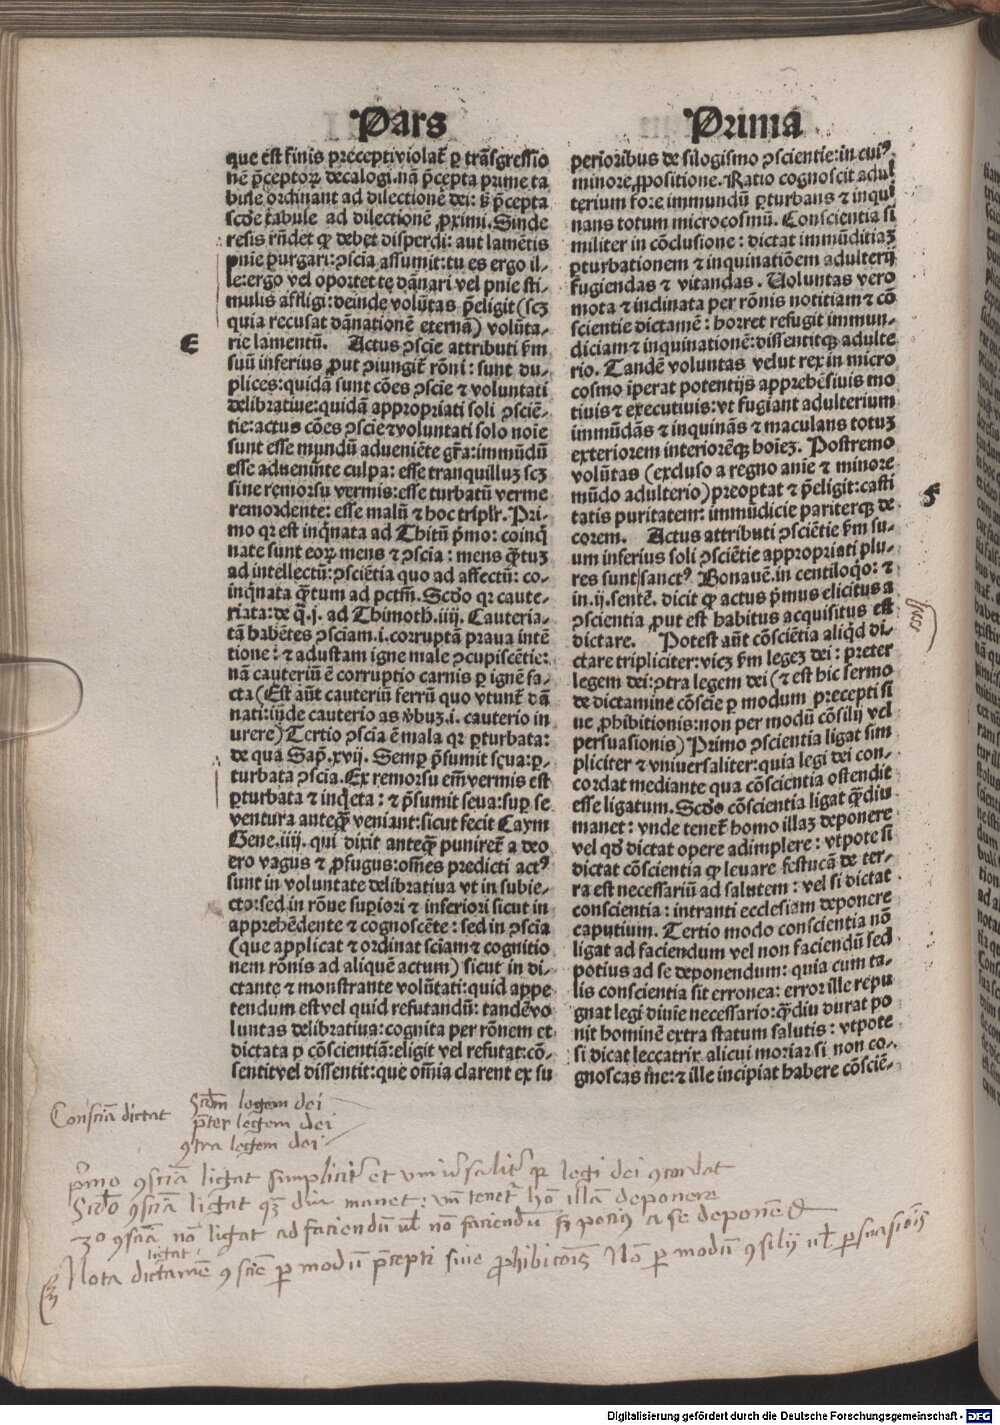 Pars Prima
que est finis precepti violat᷑ ꝑ trāsgressio
nē p̄ceptoꝝ decalogi. nā p̄cepta prime ta
bule ordinant ad dilectionē dei: sꝫ p̄cepta
scd̓e tabule ad dilectionē ꝓximi. Sinde
resis rn̄det ꝙ debet disperdi: aut lamētis
pnie purgari: ꝯscia assumit: tu es ergo il-
le: ergo vel oportet te dānari vel pnie sti-
mulis affligi: deinde volūtas p̄eligit (scꝫ
quia recusat dānationē eternā) volūta-
rie lamentū. Actus ꝯscie attributi ẜm
E
suū inferius ꝓut ꝯiungit᷑ rōni: sunt du-
plices: quidā sunt cōes ꝯscie ⁊ voluntati
delibratiue: quidā appropriati soli ꝯsciē-
tie: actus cōes ꝯscie ⁊ voluntati solo noīe
sunt esse mundū adueniēte gr̄a: immūdū
esse adueniēte culpa: esse tranquilluꝫ scꝫ
sine remorsu vermis: esse turbatū verme
remordente: esse malū ⁊ hoc triplr̓. Pri-
mo qr est inq̄nata ad Thitū p̄mo: coinq̄
nate sunt eoꝝ mens ⁊ ꝯscia: mens q̄tuꝫ
ad intellectū: ꝯsciētia quo ad affectū: co-
inq̄nata q̄tum ad pctm̄. Scd̓o qr caute-
riata: de q̄ .j. ad Thimoth̓. iiij. Cauteria-
tā habētes ꝯsciam .i. corruptā praua intē
tione: ⁊ adustam igne male ꝯcupiscētie:
nā cauteriū ē corruptio carnis ꝑ ignē fa-
cta (Est aūt cauteriū ferrū quo vtunt᷑ dā
nati: iīde cauterio as v̓buꝫ .i. cauterio in
urere) Tertio ꝯscia ē mala qr ꝑturbata:
de qua Sap̄. xvij. Semꝑ p̄sumit seua: ꝑ-
turbata ꝯscia. Ex remorsu em̄ vermis est
ꝑturbata ⁊ inq̄eta: ⁊ p̄sumit seua: suꝑ se
ventura anteq̄ꝫ veniant: sicut fecit Caym
Gene. iiij. qui dixit anteq̄ꝫ puniret᷑ a deo
ero vagus ⁊ ꝓfugus: oīnes predicti actꝰ
sunt in voluntate delibratiua vt in subie-
cto: sed in rōne suꝑiori ⁊ inferiori sicut in
apprehēdente ⁊ cognoscēte: sed in ꝯscia
(que applicat ⁊ ordinat sciam ⁊ cognitio
nem rōnis ad aliquē actum) sicut in di-
ctante ⁊ monstrante volūtati: quid appe
tendum est vel quid refutandū: tandē vo
luntas delibratiua: cognita per rōnem et
dictata ꝑ cōscientiā: eligit vel refutat: cō-
sentit vel dissentit: que oīnia clarent ex su
perioribus de silogismo ꝯscientie: in cuiꝰ
minore ꝓpositione. Ratio cognoscit adul
terium fore immundū ꝑturbans ⁊ inqui
nans totum microcosmū. Conscientia si
militer in cōclusione: dictat immūditiaꝫ
ꝑturbationem ⁊ inquinatiōem adulterij
fugiendas ⁊ vitandas. Uoluntas vero
mota ⁊ inclinata per rōnis notitiam ⁊ cō
scientie dictamē: horret refugit immun-
diciam ⁊ inquinationē: dissentitqꝫ adulte
rio. Tandē voluntas velut rex in micro
cosmo īperat potentijs apprehēsiuis mo
tiuis ⁊ executiuis: vt fugiant adulterium
immūdās ⁊ inquinās ⁊ maculans totuꝫ
exteriorem interiorēqꝫ hoīeꝫ. Postremo
volūtas (excluso a regno anie ⁊ minore
mūdo adulterio) preoptat ⁊ p̄eligit: casti
tatis puritatem: immūdicie pariterqꝫ de
corem. Actus attributi ꝯsciētie ẜm su-
F
um inferius soli ꝯsciētie appropriati plu-
res sunt sanctꝰ Bonauē. in centiloq̓o: ⁊
in .ij. sentē. dicit ꝙ actus p̄mus elicitus a
ꝯscientia ꝓut est habitus acquisitus est
dictare. Potest aūt cōsciētia aliq̓d di-
ctare tripliciter: vicꝫ ẜm legeꝫ dei: preter
legem dei: ꝯtra legem dei (⁊ est hic sermo
de dictamine cōscie ꝑ modum precepti si
ue ꝓhibitionis: non per modū cōsilij vel
persuasionis) Primo ꝯscientia ligat sim
pliciter ⁊ vniuersaliter: quia legi dei con-
cordat mediante qua cōscientia ostendit
esse ligatum. Scd̓o cōscientia ligat q̄diu
manet: vnde tenet᷑ homo illaꝫ deponere
vel qd̓ dictat opere adimplere: vtpote si
dictat cōscientia ꝙ leuare festucā de ter-
ra est necessariū ad salutem: vel si dictat
conscientia: intranti ecclesiam deponere
caputium. Tertio modo conscientia nō
ligat ad faciendum vel non faciendū sed
potius ad se deponendum: quia cum ta-
lis conscientia sit erronea: error ille repu
gnat legi diuie necessario: q̄diu durat po
nit hominē extra statum salutis: vtpote
si dicat leccatrix alicui moriar si non co-
gnoscas me: ⁊ ille incipiat habere cōsciē-
Consciā dictat
Scd̄m legem dei
p̄ter legem dei
ꝯtra legem dei
p̄mo ꝯsciā ligat simplicit̓ et vniu̓salit̓ qꝛ legi dei ꝯcordat
Scd̓o ꝯsciā ligat qꝫ diu manet: vn̄ tenet᷑ hō illā deponere
3º ꝯsciā nō ligat ad faciendū ul̓ nō faciendū sꝫ potius a se deponēd
ligat
Nota dictamē ꝯscie ꝑ modū p̄cepti siue ꝓhibitōis Nō ꝑ modū ꝯsilij ul̓ ꝑsuasionis
Digitalisierung gefördert durch die Deutsche Forschungsgemeinschaft - DFG